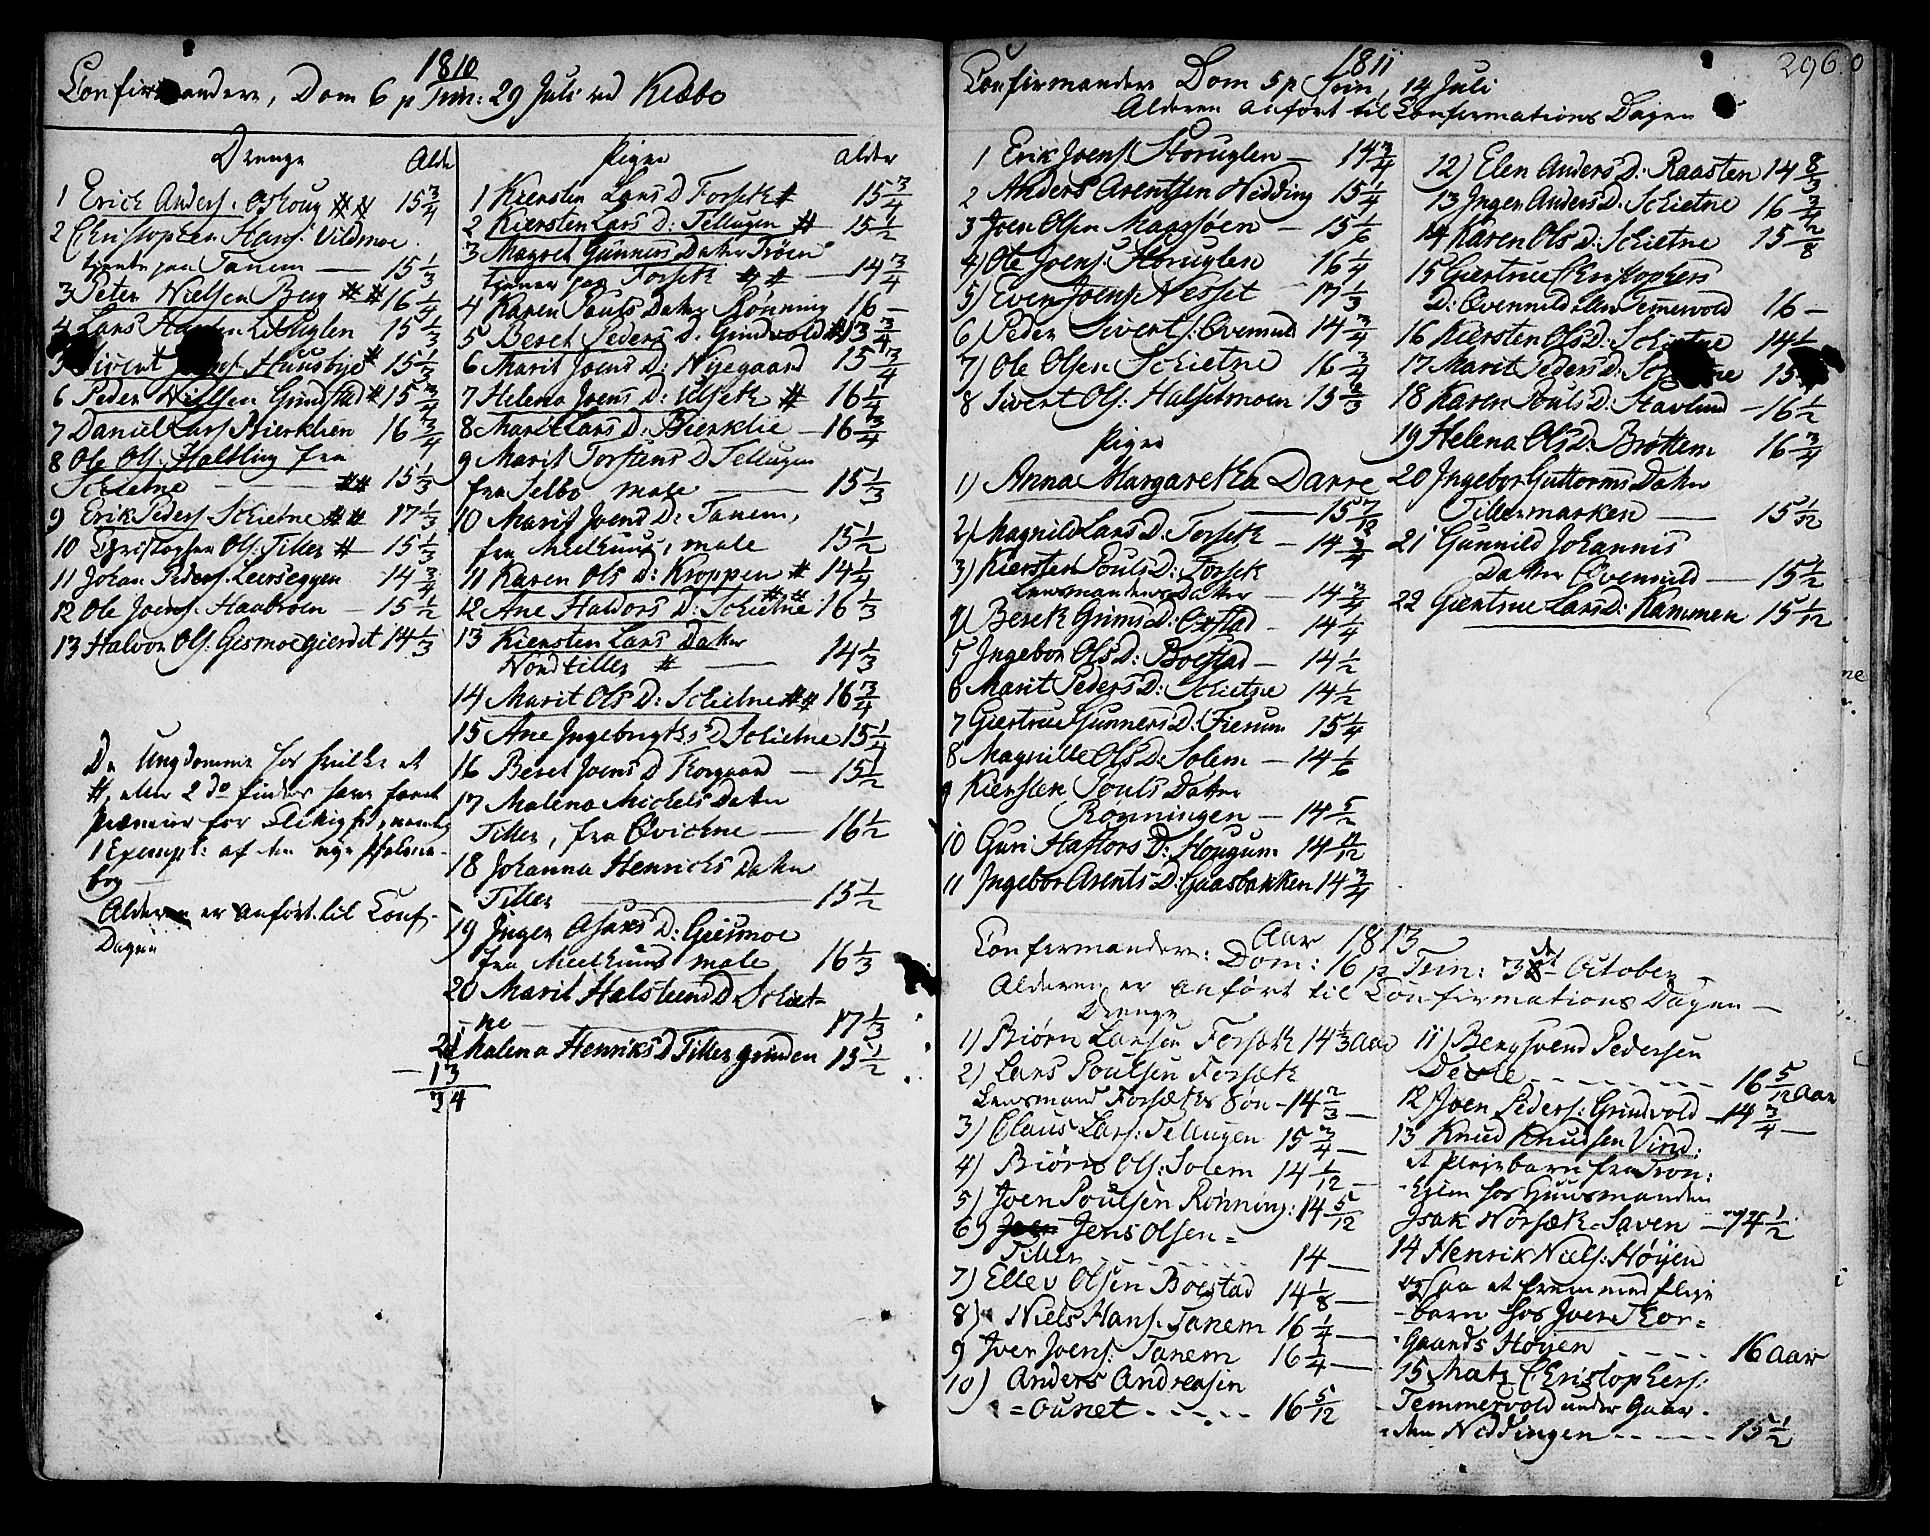 1810
Confirmandere, Dom 6 p Trin: 29 Juli ved Klæbo
Drenge Alde
1 Erich Anders. Oshoug ## 15 3/4
2 Christopher Hans. Vildmoe
tjente paa Tanem — 15 1/3
3 Peter Nielsen Berg ## 16 1/4
4 Lars Hansen Litluglen 15 1/3
5 Sivert Joens. Huusbye # 15 1/3
6 Peder Nielsen Grindstad # 15 3/4
7 Daniel Lars. Bierklien 16 3/4
8 Ole Ols. Haltling fra
Schietne — ## 15 1/3
9 Erik Peders. Schietne ## 17 1/3
10 Christopher Ols. Tiller # 15 1/3
11 Johan Peders. Leerseggen 14 3/4
12 Ole Joens. Haabroen — 15 1/2
13 Halvor Ols: Gismoegierdet 14 1/3
De Ungdomme hos hvilke et
#, eller 2 do findes have faaet
Præmier for Flittighed, nemlig
1 Exempl: af den nye Psalme-
bog
Alderen er anført til Conf-
Dagen
Piger alder
1 Kiersten Lars D Forseth # 15 3/4
2 Kiersten Lars D: Tellugen # 15 1/2
3 Magret Gunners Dater Trøen
tjener paa Forseth ## — 14 3/4
4 Karen Pouls Dater Rønning 16 —
5 Beret Peders D. Grindvold # 13 3/4
6 Marit Joens D: Nyegaard 15 3/4
7 Helena Joens D: Ulseth # 16 1/4
8 Marit Lars D: Bierklie — 16 3/4
9 Marit Torstens D Tellugen
fra Selbo male — 15 1/3
10 Marit Joens D: Tanem,
fra Meelhuus, male 15 1/2
11 Karen Ols D: Kroppen # 14 1/4
12 Ane Haldors D: Schietne ## 16 1/3
13 Kiersten Lars Dater
Nordtiller # — 14 1/3
14 Marit Ols D: Schietne ## 16 3/4
15 Ane Ingebrigts D Schietne 15 1/4
16 Beret Joens D Korgaard — 15 1/2
17 Malena Michels Dater
Tiller, fra Qvichne — 16 1/2
18 Johanna Henrichs Dater
Tiller — 15 1/2
19 Inger Asaks D: Gissmoe
fra Meelhuus male 16 1/3
20 Marit Halstens D Schiet=
- ne — 17 1/3
21 Malena Henriks D Tillergrinden 15 1/2
- 13
34
1811 296
Confirmander Dom 5 p Trin, 14 Juli
Alderen anført til Confirmations Dagen
1 Erik Joens. Storuglen — 14 3/4
2 Anders Arentsen Nedding 15 1/4
3 Joen Olsen Maassøen — 15 1/6
4) Ole Joens: Storuglen 16 1/4
5) Even Joens. Nesset — 17 1/3
6) Peder Siverts: Qvernul 14 3/4
7) Ole Olsen Schietne 16 3/4
8 Sivert Ols: Halsetmoen 15 2/3
Piger
1) Anna Margaretha Darre
— 15 7/12
2) Magnild Lars D: Forseth — 14 3/4
3) Kiersten Pouls D: Forseth
Lensmandens Dater — 14 3/4
4) Bereth Grims D: Oxstad — 14 1/4
5 Ingebor Ols D: Boelstad — 14 1/2
6 Marit Peders D: Schietne 14 1/2
7 Giertrue Gunners D: Fierum 15 1/4
8 Magnille Ols D: Solem — 14 1/6
9 Kiersten Pouls Dater
Rønningen — 14 5/12
10 Guri Haftors D: Hougum 14 11/12
11 Ingebor Arents D: Gaasbakken 14 3/4
12) Elen Anders D: Raasten 14 8/3
13 Inger Anders D: Schietne 16 3/4
14 Karen Ols D: Schietne 15 2/8
15 Giertrue Christophers
D: Qvernuld eller Temervold 16 —
16 Kiersten Ols D: Schietne 14 1/
17 Marit Peders D: Schietne 15
18 Karen Pouls D: Stavlund — 16 1/2
19 Helena Ols D: Brøttem 16 3/4
20 Ingebor Guttorms Dater
Tillermarken — 15 1/12
21 Gunnild Johannis
Dater Qvernuld — 15 1/2
22 Giertrue Lars D: Kammen 15 1/12
Aar 1813
Confermander: Dom: 16 p Trin: 3 det October —
Alderen er anført til Confirmations Dagen —
Drenge
1) Biørn Larsen Forsæth 14 1/3 Aar
2) Lars Poulsen Forsæth
Lensmand Forsæths Søn — 14 2/3 —
3) Claus Lars: Tellugen 15 3/4 —
4) Biørn Ols: Solem 14 1/12 —
5) Joen Poulsen Rønning: 14 5/12
6) Jens Olsen =
Tiller — 14 —
7) Ellev Olsen Boestad 14 1/8 —
8) Niels Hans. Tanem 16 1/4 —
9 Iver Joens: Tanem 16 1/4 —
10) Anders Andreasen
= Ounet — 16 5/12
11) Bengsvend Pedersen
Devle — 16 5/12 Aar
12 Joen Peders: Grindvold — 14 3/4 —
13 Knud Knudsen Vind:
et Plejebarn fra Tron:
- hjem hos Huusmanden
Isak Norsæth-Saven — 14 1/2
14 Henrik Niels: Høyen
ogsaa et fremmed Pleje
- barn hos Iver Kor=
- Gaards Høyen — 16 Aar
15 Mats Christophers:
Temmervold under Gaar-
= den Neddingen — 15 1/2